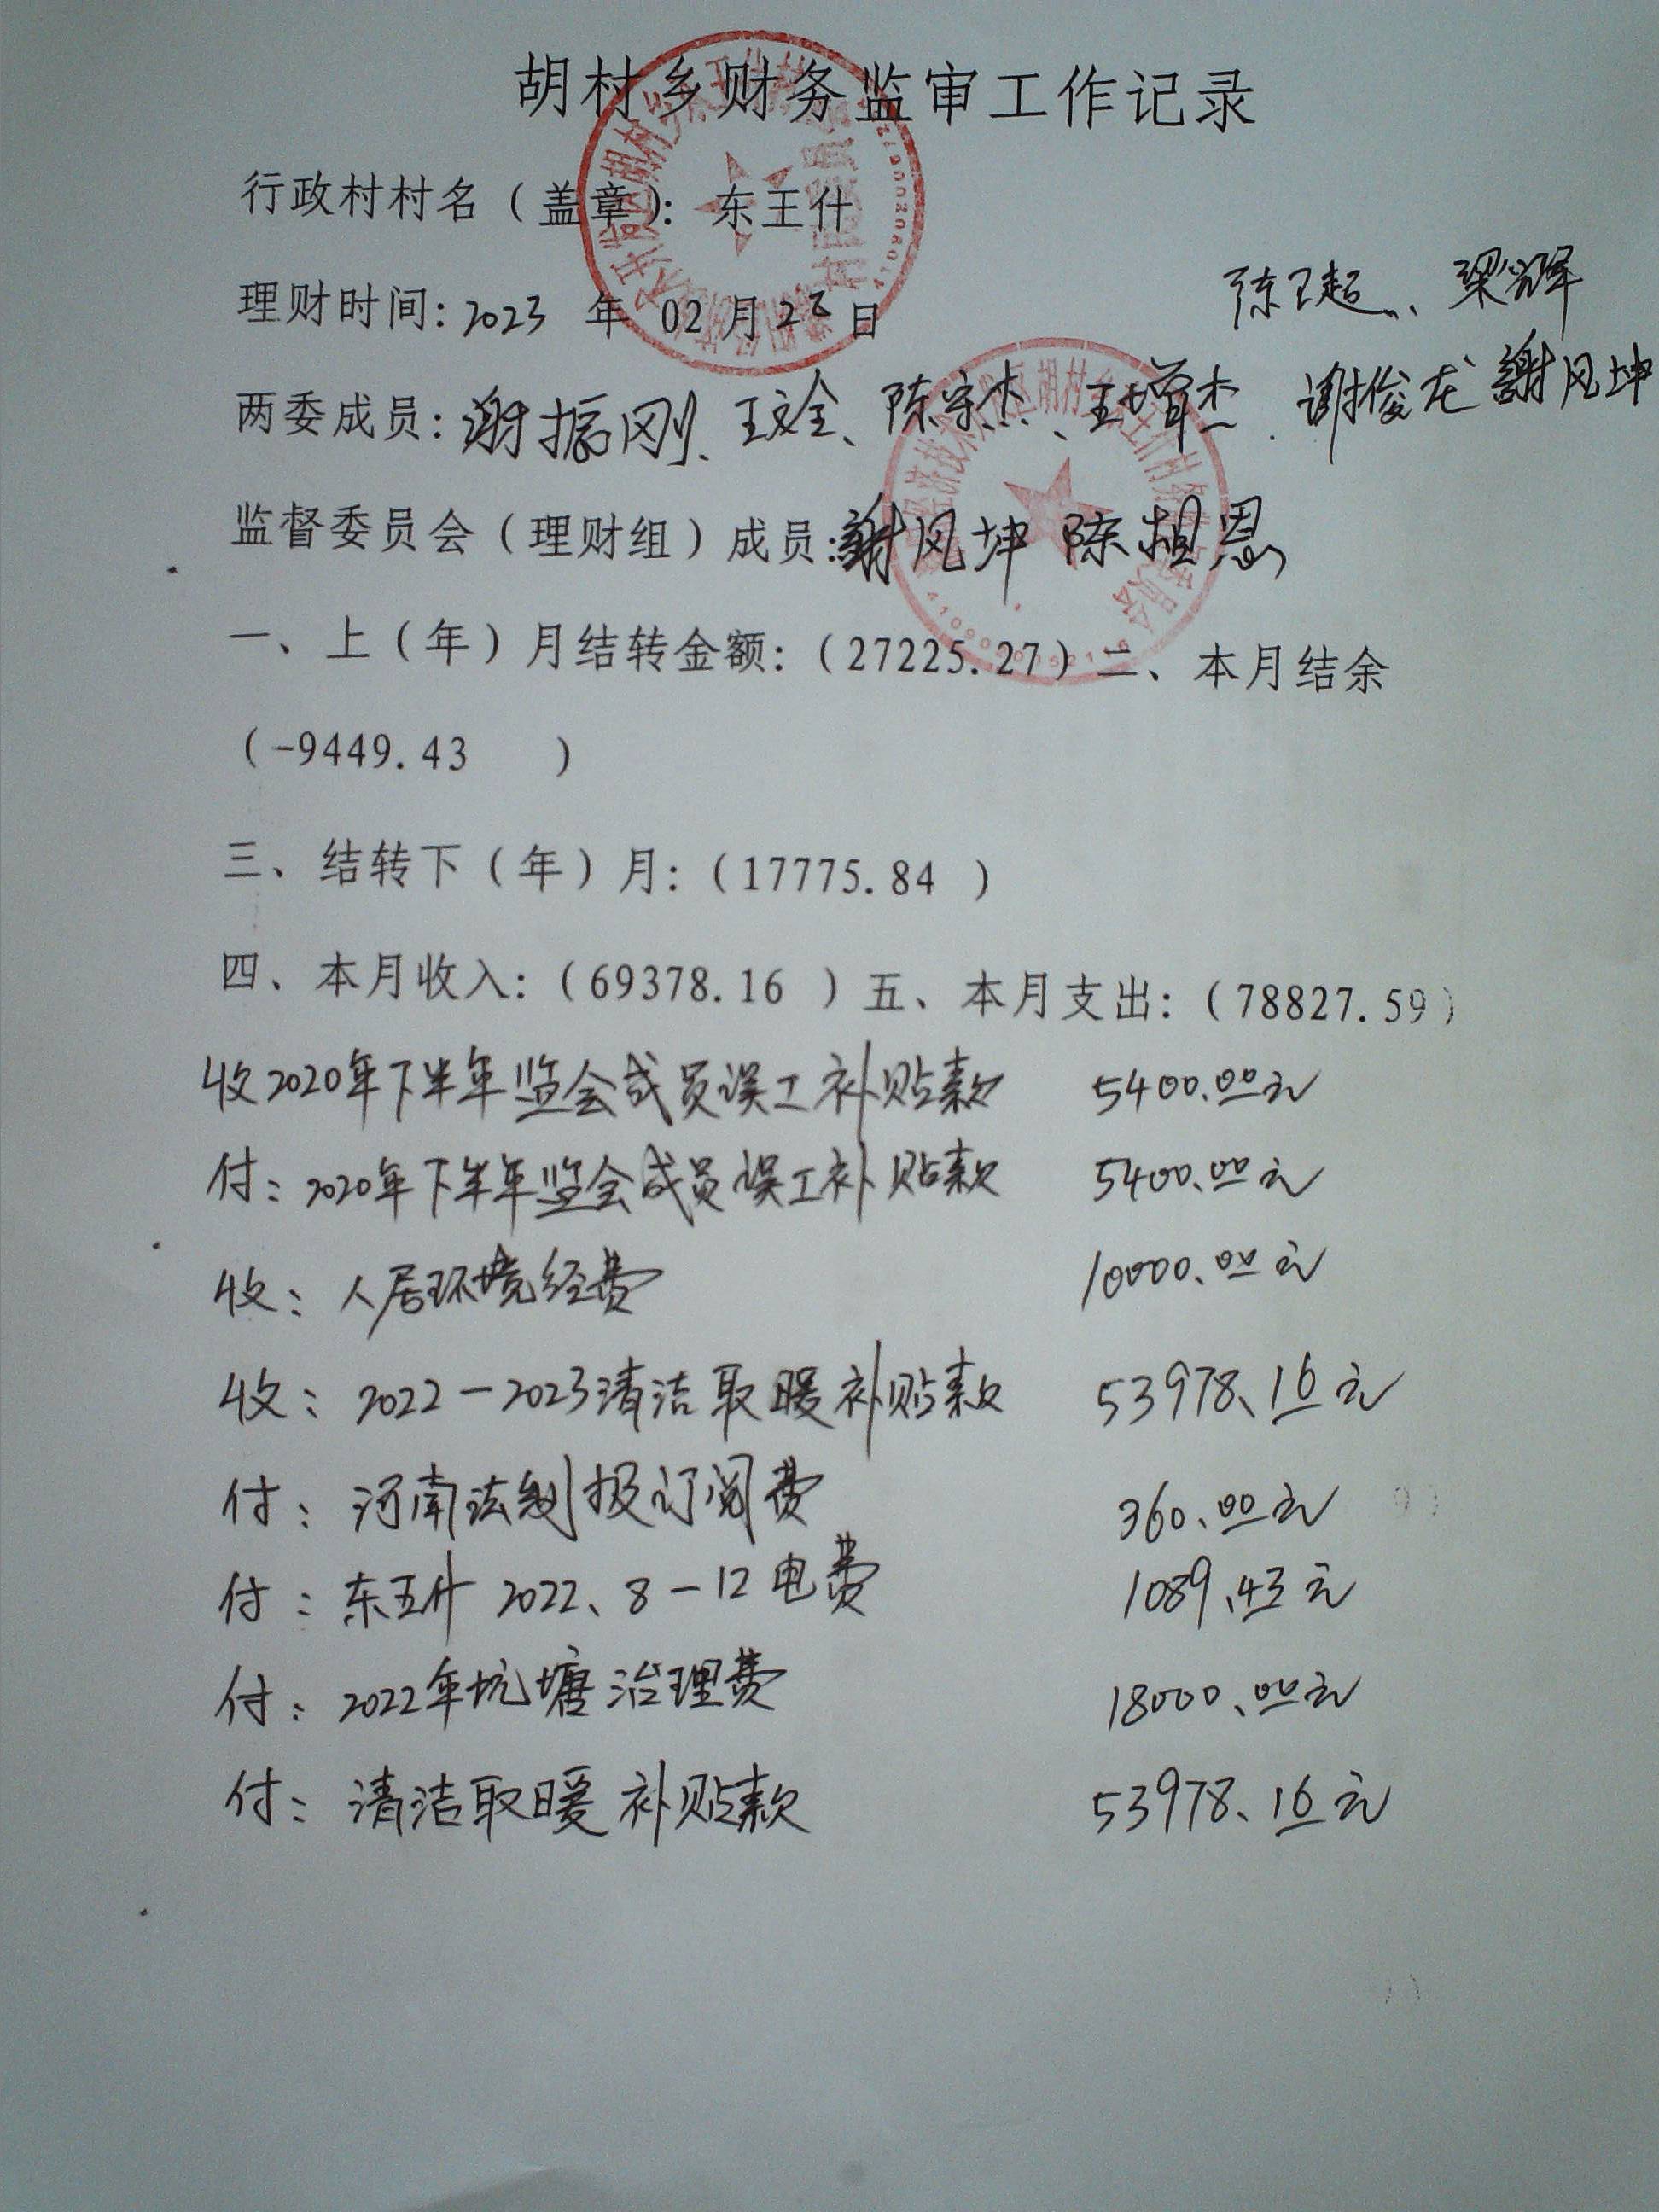 胡村乡财务监审工作记录
行政村村名（盖章）：东王什
理财时间：2023 年 02 月 28 日
陈卫超、梁
两委成员：谢振刚、王文全、陈宗杰、王增杰、谢俊龙 謝风坤
监督委员会（理财组）成员：謝风坤 陈相恩
一、上（年）月结转金额：（27225.27）二、本月结余
（-9449.43 ）
三、结转下（年）月：（17775.84 ）
四、本月收入：（69378.16 ）五、本月支出：（78827.59）
收2020年下半年监会成员误工补贴款 5400.00元
付：2020年下半年监会成员误工补贴款 5400.00元
收：人居环境经费 10000.00元
收：2022－2023清洁取暖补贴款 53978.16元
付：河南法制报订阅费 360.00元
付：东王什 2022、8－12电费 1089.43元
付：2022年坑塘治理费 18000.00元
付：清洁取暖补贴款 53978.16元